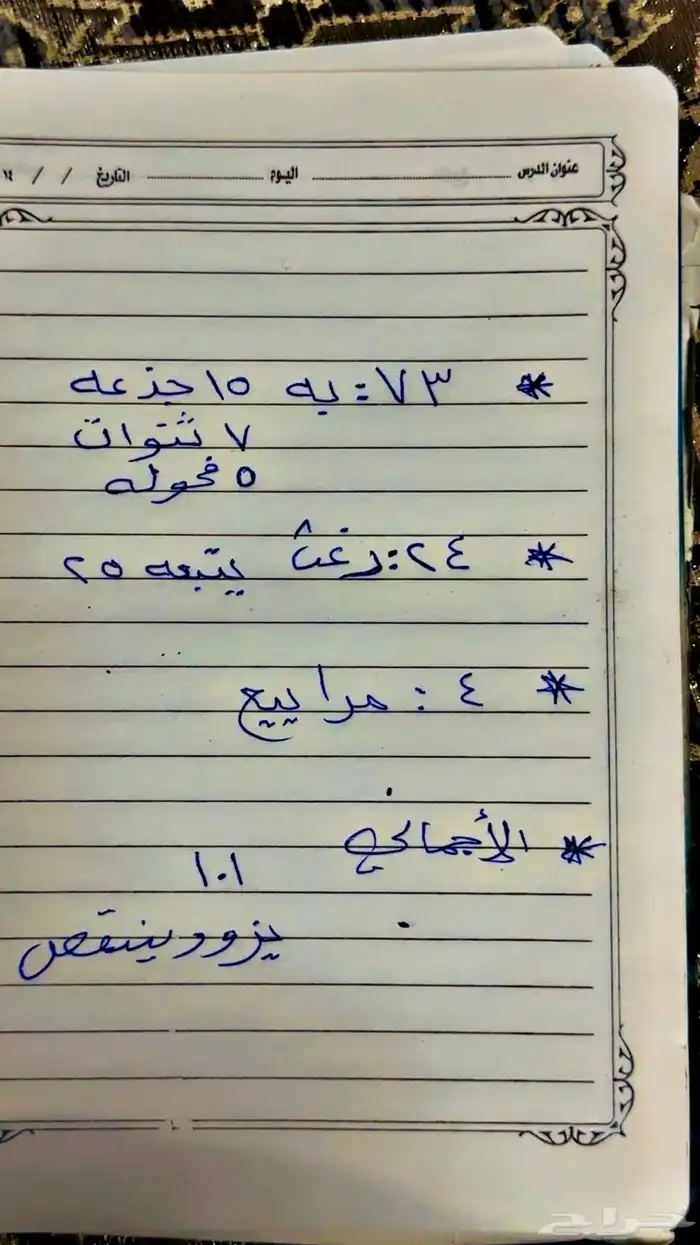 عنوان الدرس ........ اليوم ........ التاريخ / / ١٤
* ٧٣: به ١٥ جذعه
٧ ثنوات
٥ فحوله
* ٢٤: رغث يتبعه ٢٥
* ٤ : مرابيع
* الأجمالي
١٠١
يزود ينقص
حراج